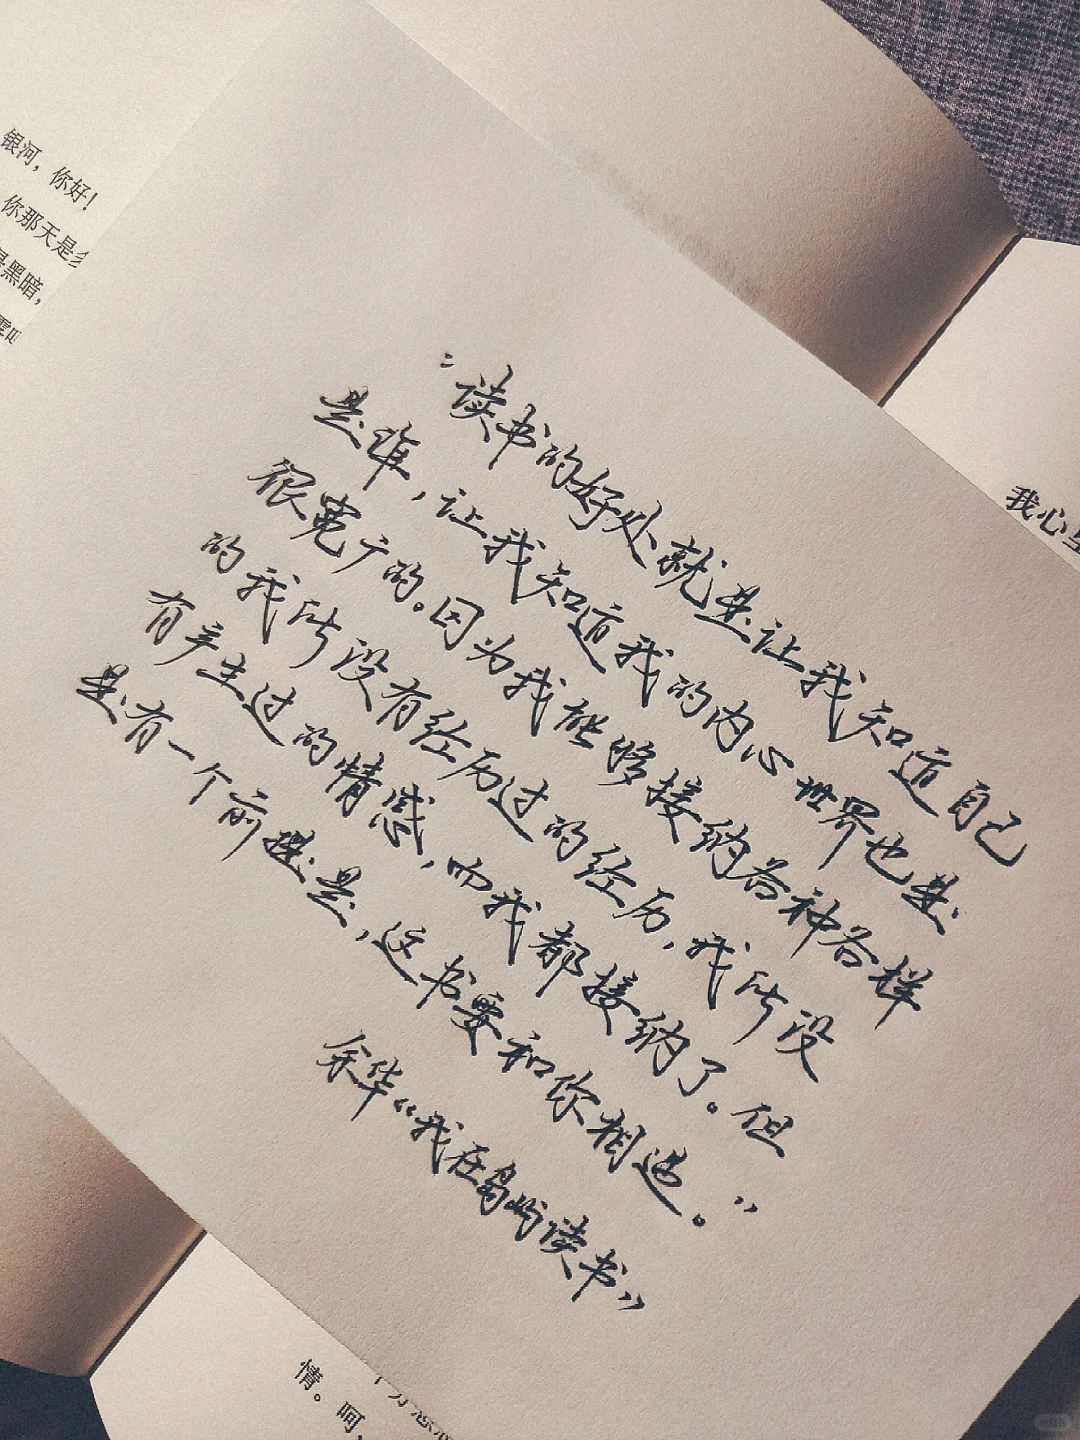 银河，你好！
你那天是
黑暗，
“读书的好处就是让我知道自己
是谁，让我知道我的内心世界也是
很宽广的。因为我能够接纳各种各样
的我所没有经历过的经历，我所没
有产生过的情感，而我都接纳了。但
是有一个前提是，这书要和你相遇。”
余华“我在岛屿读书”
我心里
情。呵，
小红书